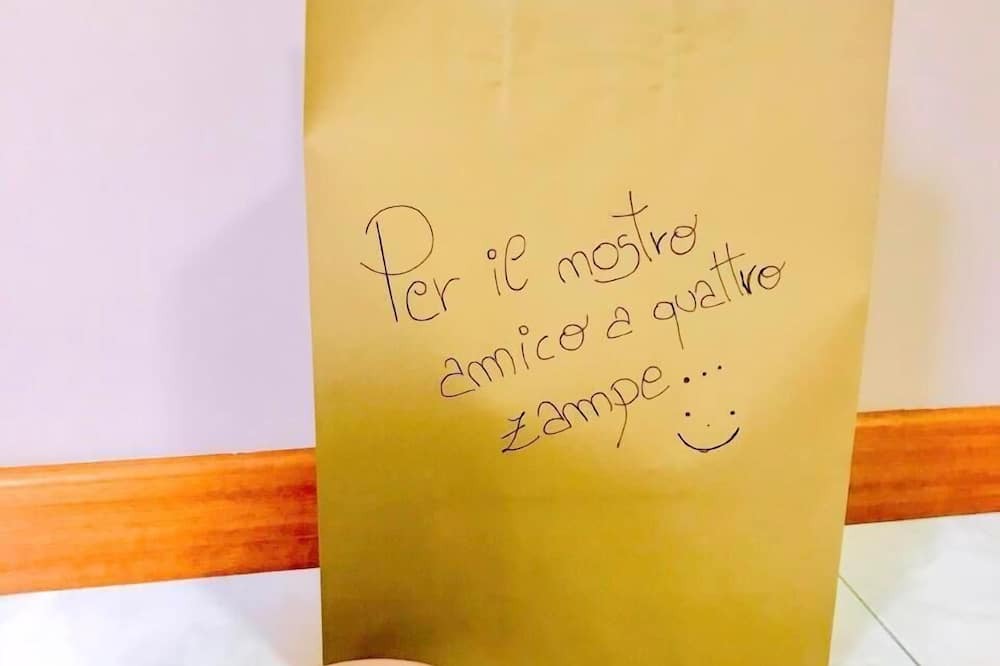 Per il mostro
amico a quattro
zampe...